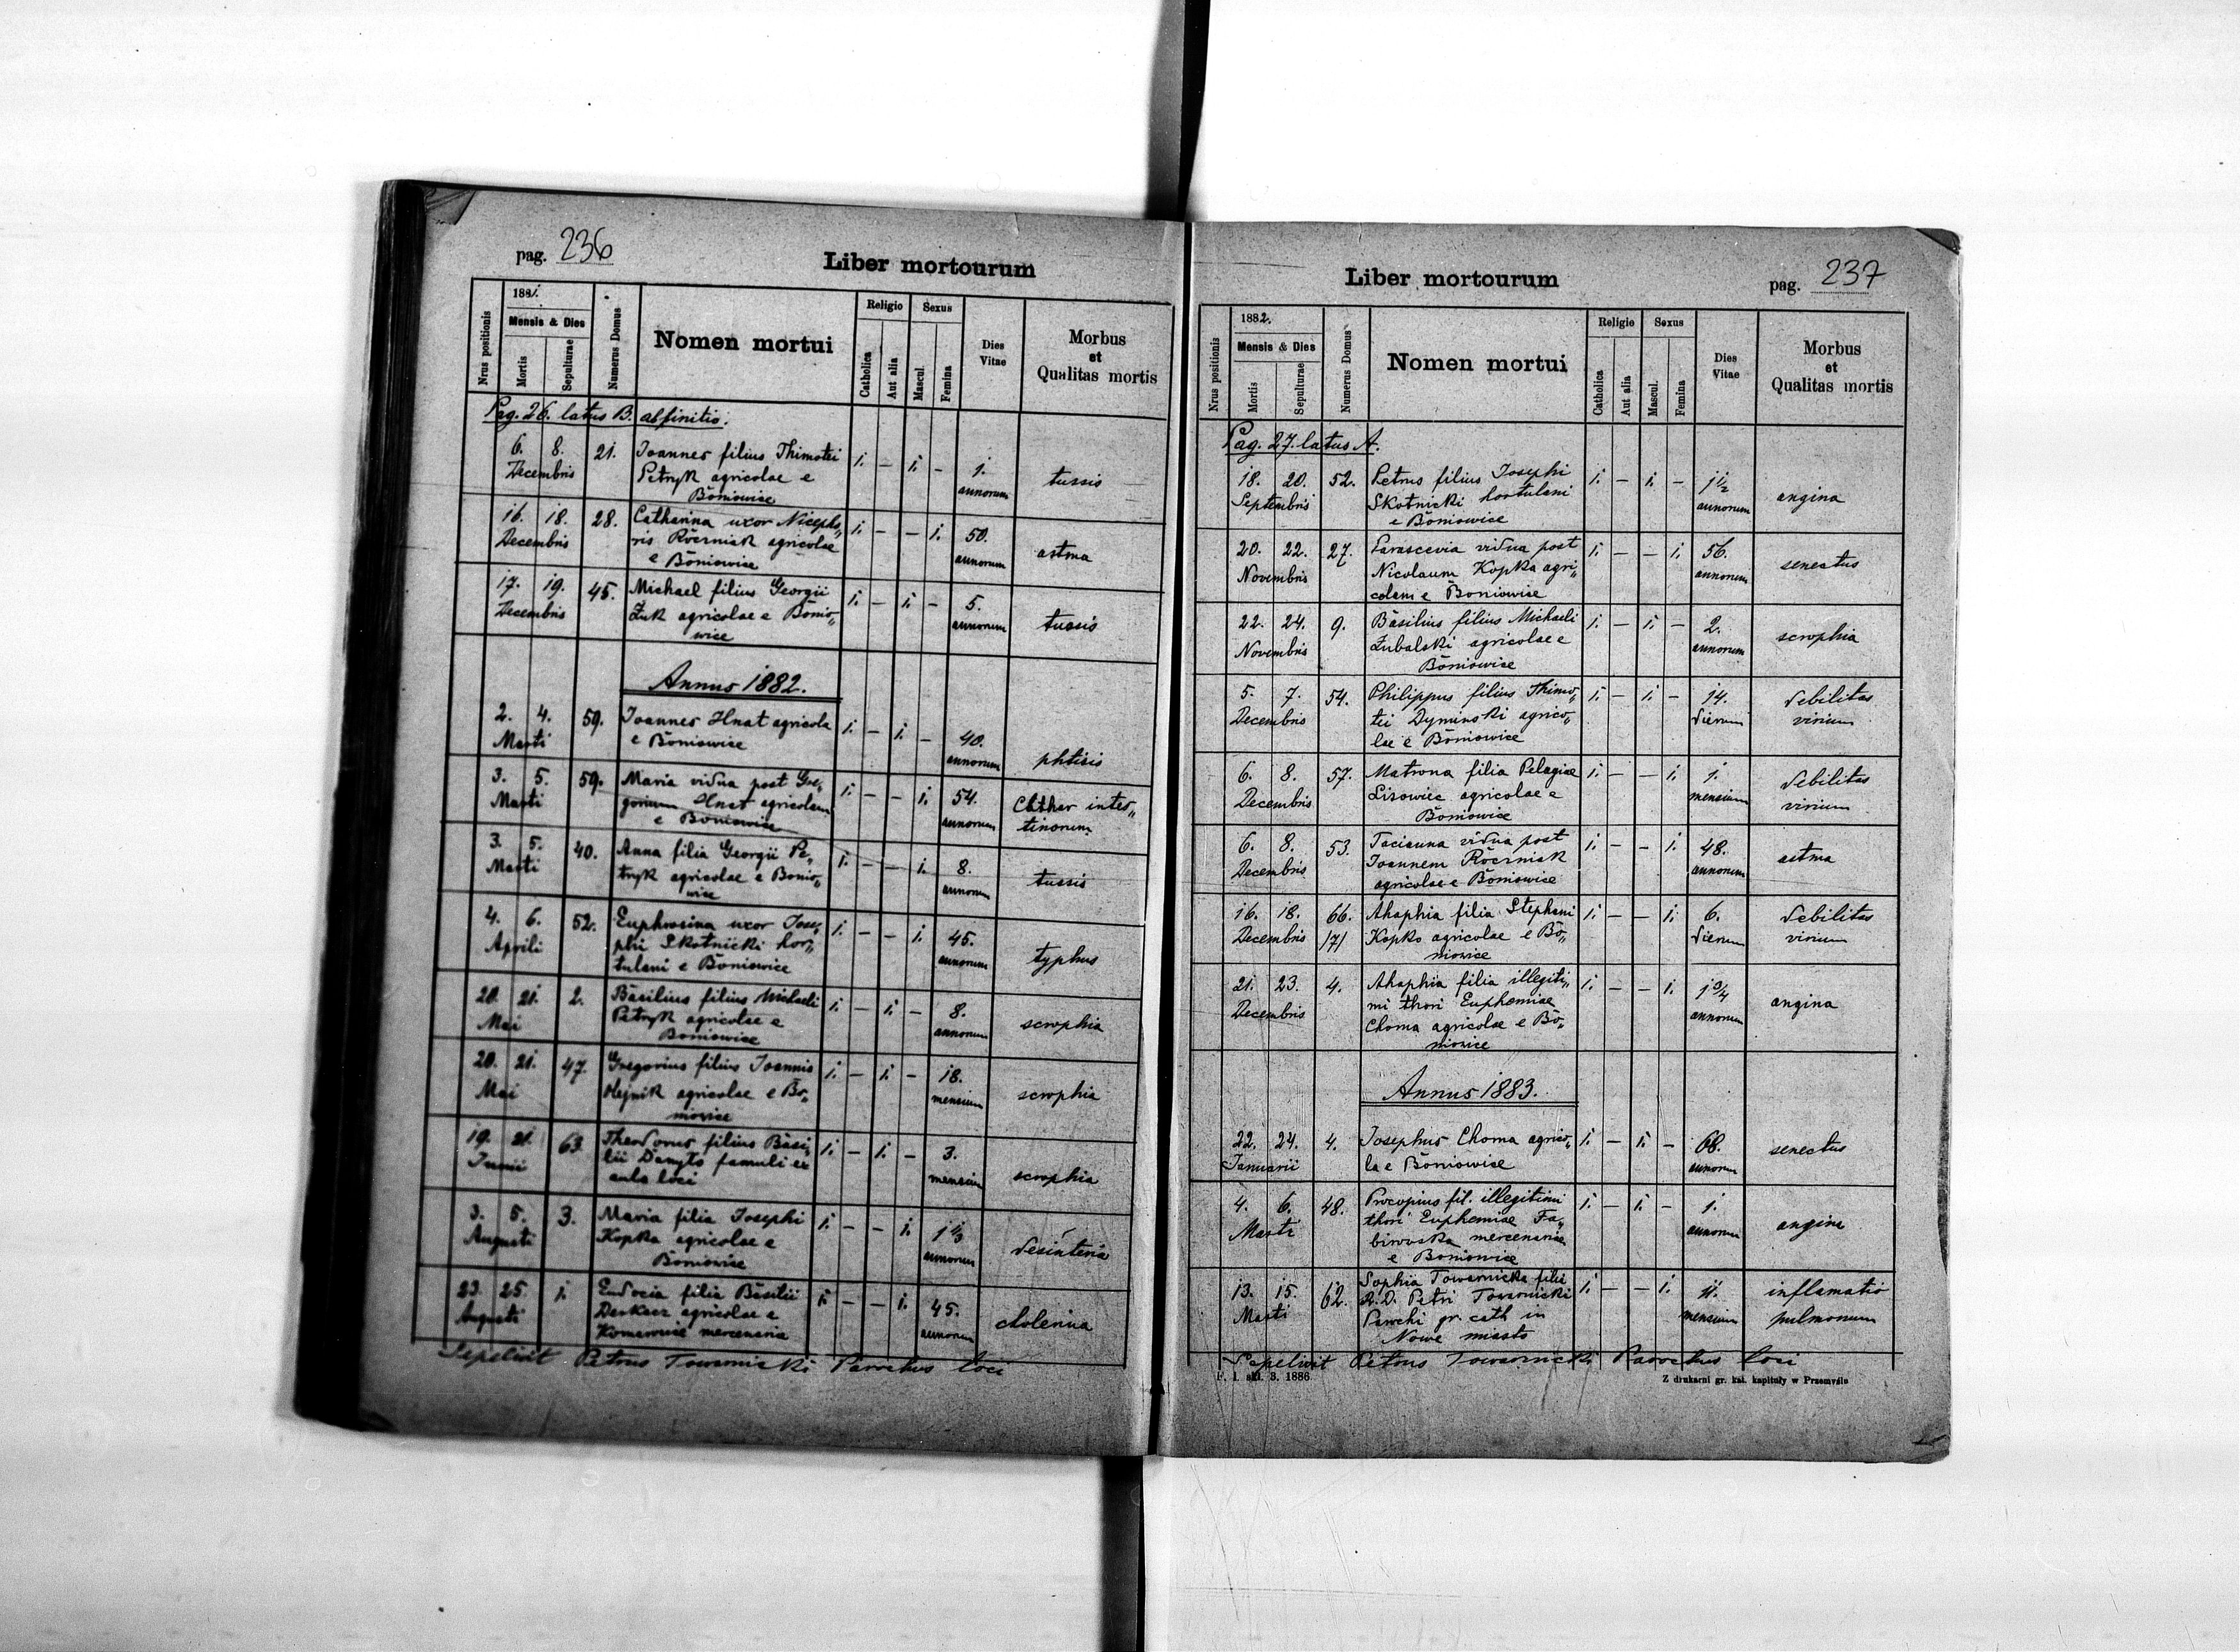 pag. 236
Liber mortourum
Nrus positionis
1881.
Mensis & Dies
Mortis
Sepulturae
Numerus Domus
Nomen mortui
Religio
Catholica
Aut alia
Sexus
Mascul.
Femina
Dies
Vitae
Morbus
et
Qualitas mortis
Pag. 26. latus B. abfinitio.
6. 8. 21. Joannes filius Thimotei 1. — 1. — 1.
Decembris Petryk agricolae e annorum tussis
Boniowice
16. 18. 28. Catharina uxor Nicepho„ 1. — — 1. 50.
Decembris ris Röerniak agricolae annorum astma
e Boniowice
17. 19. 45. Michael filius Georgii 1. — 1. — 5.
Decembris Żuk agricolae e Bonio„ annorum tussis
wice
Annus 1882.
2. 4. 59. Joannes Hnat agricola 1. — 1. — 40.
Marti e Boniowice annorum phtisis
3. 5. 59. Maria vidua post Gre„ 1. — — 1. 54. Cathar intes„
Marti gorium Hnat agricolam annorum tinorum
e Boniowice
3. 5. 40. Anna filia Georgii Pe„ 1. — — 1. 8.
Marti tryk agricolae e Bonio„ annorum tussis
wice
4. 6. 52. Euphrosina uxor Jose„ 1. — — 1. 45.
Aprili phi Skotnicki hor„ annorum typhus
tulani e Boniowice
20. 21. 2. Basilius filius Michaeli 1. — 1. — 8.
Mai Petryk agricolae e annorum scrophia
Boniowice
20. 21. 47. Gregorius filius Joannis 1. — 1. — 18.
Mai Olejnik agricolae e Bo„ mensium scrophia
niowice
19. 21. 63. Theodorus filius Basi„ 1. — 1. — 3.
Junii lii Danyto famuli ex mensium scrophia
aula loci
3. 5. 3. Maria filia Josephi 1. — — 1. 1 1/3
Augusti Kopka agricolae e annorum desinteria
Boniowice
23. 25. 1. Eudocia filia Basilii 1. — — 1. 45.
Augusti Derkacz agricolae e annorum cholerina
Komarowice mercenaria
Sepelivit Petrus Towarnicki Parochus loci
Liber mortourum
pag. 237
Nrus positionis
1882.
Mensis & Dies
Mortis
Sepulturae
Numerus Domus
Nomen mortui
Religio
Catholica
Aut alia
Sexus
Mascul.
Femina
Dies
Vitae
Morbus
et
Qualitas mortis
Pag. 27. latus A.
18. 20. 52. Petrus filius Josephi 1. — 1. — 1 1/2
Septembris Skotnicki hortulani annorum angina
e Boniowice
20. 22. 27. Parascevia vidua post 1. — — 1. 56.
Novembris Nicolaum Kopka agri„ annorum senectus
colam e Boniowice
22. 24. 9. Basilius filius Michaeli 1. — 1. — 2.
Novembris Żubalski agricolae e annorum scrophia
Boniowice
5. 7. 54. Philippus filius Thimo„ 1. — 1. — 14. debilitas
Decembris tei Dyminski agrico„ dierum virium
lae e Boniowice
6. 8. 57. Matrona filia Pelagiae 1. — — 1. 1. debilitas
Decembris Lisowiec agricolae e mensium virium
Boniowice
6. 8. 53. Tacianna vidua post 1. — — 1. 48.
Decembris Joannem Röerniak annorum astma
agricolae e Boniowice
16. 18. 66. Ahaphia filia Stephani 1. — — 1. 6. debilitas
Decembris /7/ Kopko agricolae e Bo„ dierum virium
niowice
21. 23. 4. Ahaphia filia illegiti„ 1. — — 1. 1 3/4
Decembris mi thori Euphemiae annorum angina
Choma agricolae e Bo„
niowice
Annus 1883.
22. 24. 4. Josephus Choma agrico„ 1. — 1. — 68. senectus
Januarii la e Boniowice annorum
4. 6. 48. Procopius fil. illegitimi 1. — 1. — 1.
Marti thori Euphemiae Fa„ annorum angina
birowska mercenariae
e Boniowice
13. 15. 62. Sophia Towarnicka filia 1. — — 1. 11. inflamatio
Marti R. D. Petri Towarnicki mensium pulmonum
Parochi gr. cath in
Nowe miasto
Sepelivit Petrus Towarnicki Parochus loci
F. l. skl. 3. 1886
Z drukarni gr. kat. kapituły w Przemyślu